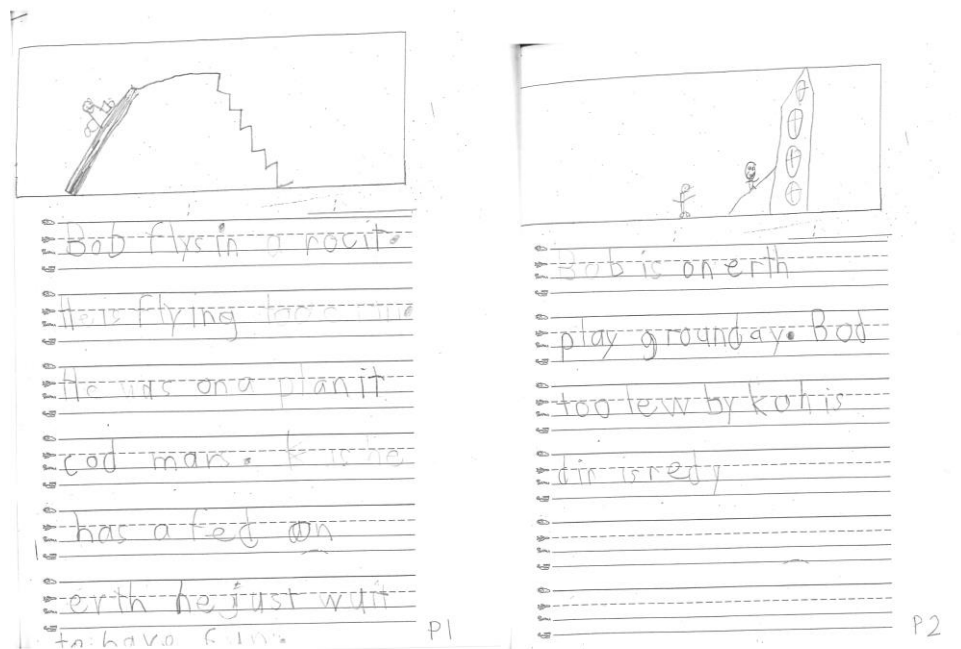 Bob flys in a rocit.
He is flying
He was on a planit
cod mars. he
has a fed on
erth he just wunt
to have fun.
P1
Bob is on erth
play grounday. Bod
too lew by koh is
dir is redy
P2